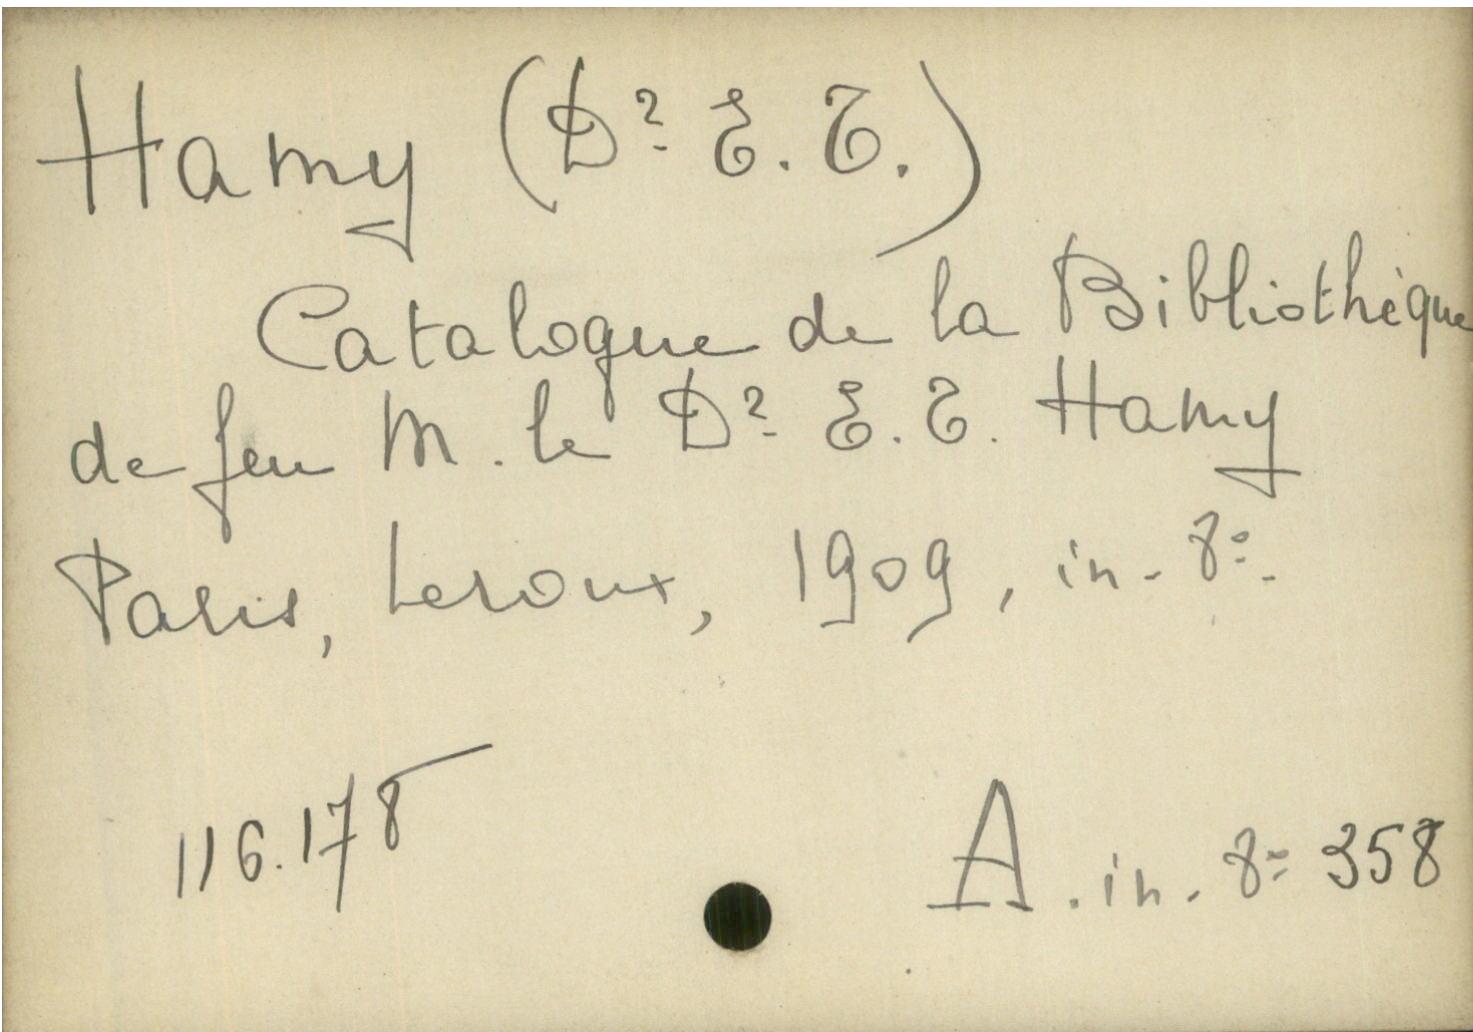 Hamy (Dr E. T.)
Catalogue de la Bibliothèque
de feu M. le Dr E. T. Hamy
Paris, Leroux, 1909, in-8º.
116.178
A. in-8º 358